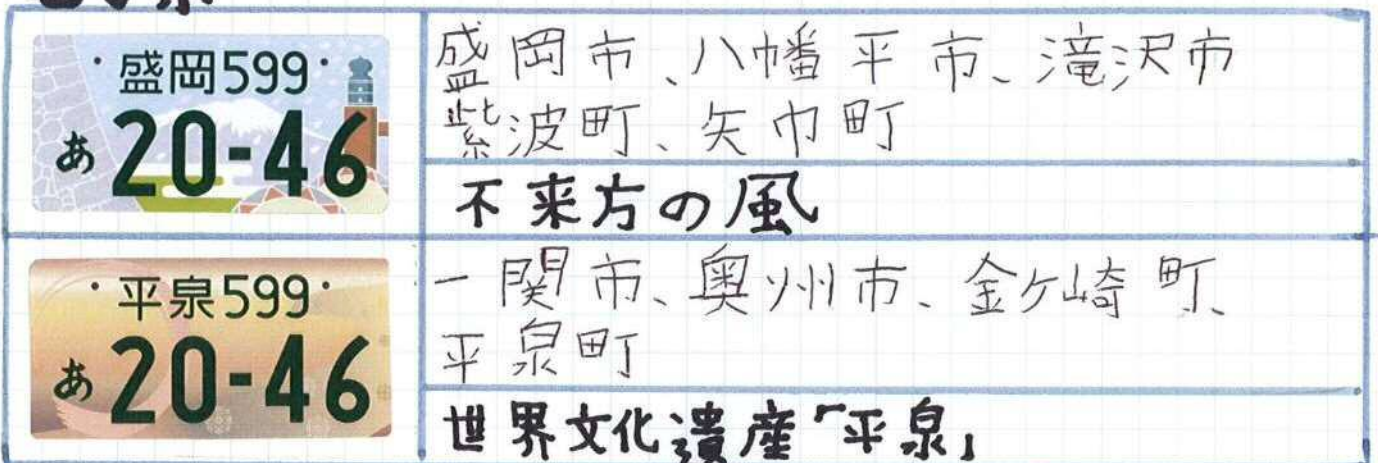 盛岡599
あ 20-46
盛岡市、八幡平市、滝沢市
紫波町、矢巾町
不来方の風
平泉599
あ 20-46
一関市、奥州市、金ケ崎町、
平泉町
世界文化遺産「平泉」